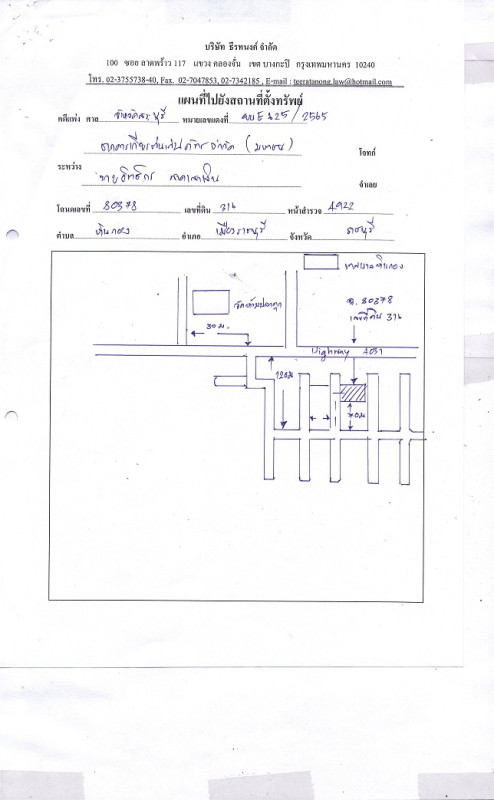 บริษัท ธีรทนงค์ จำกัด
100 ซอย ลาดพร้าว 117 แขวง คลองจั่น เขต บางกะปิ กรุงเทพมหานคร 10240
โทร. 02-3755738-40, Fax. 02-7047853, 02-7342185 , E-mail : teeratanong.law@hotmail.com
แผนที่ไปยังสถานที่ตั้งทรัพย์
คดีแพ่ง ศาล จังหวัดสระบุรี หมายเลขแดงที่ ผบE325/2565
ธนาคารเกียรตินาคินภัทร จำกัด (มหาชน) โจทก์
ระหว่าง
นายอิทธิกร จำเลย
โฉนดเลขที่ 80378 เลขที่ดิน 316 หน้าสำรวจ 4922
ตำบล หินกอง อำเภอ เมืองราชบุรี จังหวัด ราชบุรี
เทศบาลหินกอง
ฉ. 80378
เลขที่ดิน 316
30 ม.
Highway 4051
120ม